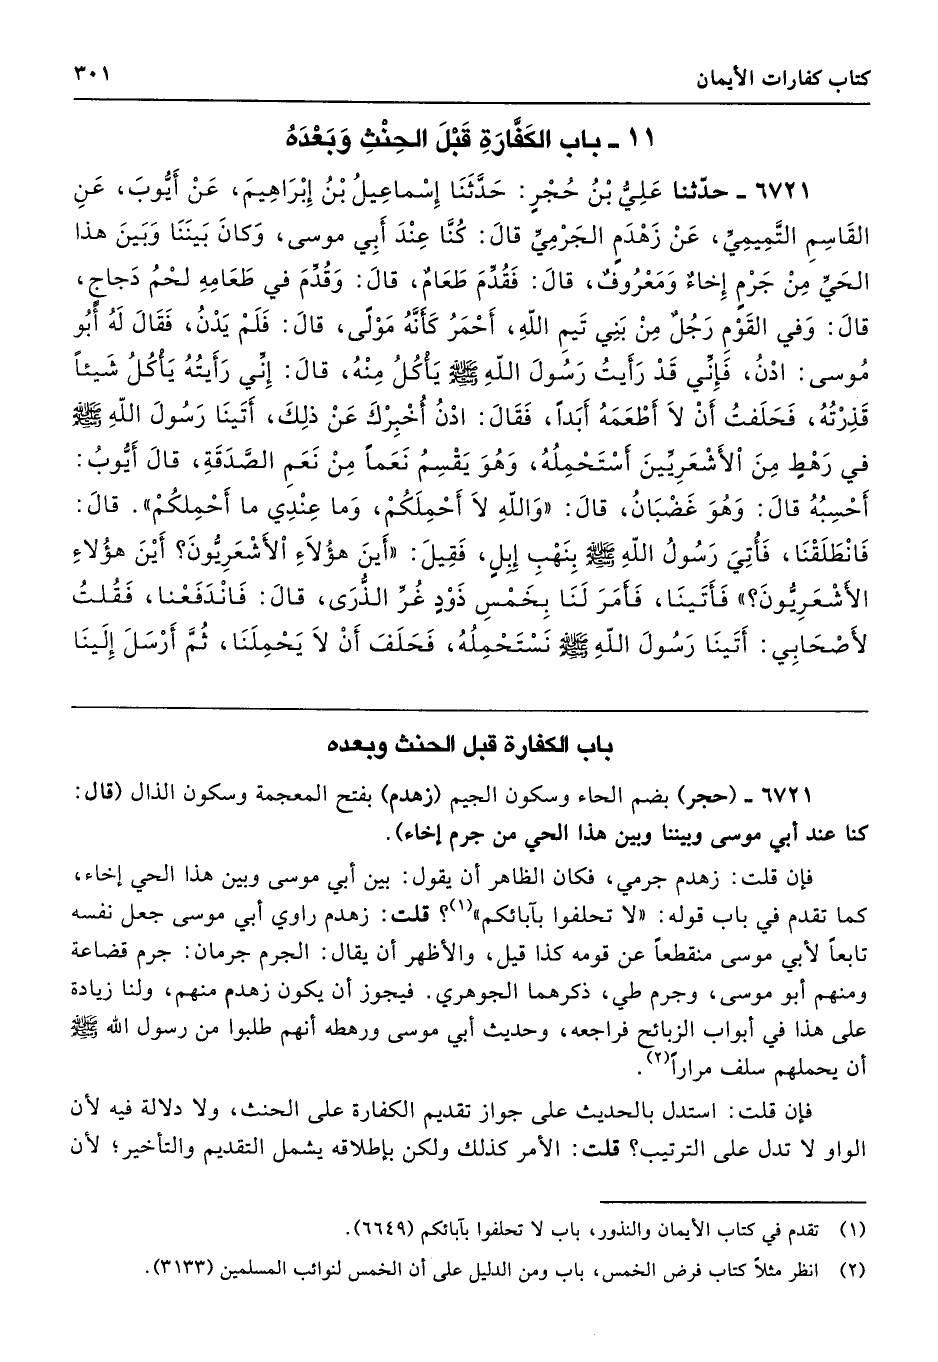 كتاب كفارات الأيمان ٣٠١
١١ ـ باب الكَفَّارَةِ قَبْلَ الحِنْثِ وَبَعْدَهُ
٦٧٢١ ـ حدّثنا عَلِيُّ بْنُ حُجْرٍ: حَدَّثَنَا إِسْماعِيلُ بْنُ إِبْرَاهِيمَ، عَنْ أَيُّوبَ، عَنِ
القَاسِمِ التَّمِيمِيِّ، عَنْ زَهْدَمٍ الجَرْمِيِّ قالَ: كُنَّا عِنْدَ أَبِي موسى، وَكانَ بَيْنَنَا وَبَيْنَ هذا
الحَيِّ مِنْ جَرْمٍ إِخاءٌ وَمَعْرُوفٌ، قالَ: فَقُدِّمَ طَعَامٌ، قالَ: وَقُدِّمَ في طَعَامِهِ لحْمُ دَجاجٍ،
قالَ: وَفي القَوْمِ رَجُلٌ مِنْ بَنِي تَيمِ اللّهِ، أَحْمَرُ كَأَنَّهُ مَوْلًى، قالَ: فَلَمْ يَدْنُ، فَقَالَ لَهُ أَبُو
مُوسى: ادْنُ، فَإِنِّي قَدْ رَأَيتُ رَسُولَ اللّهِ ﷺ يَأْكُلُ مِنْهُ، قالَ: إِنِّي رَأَيتُهُ يَأْكُلُ شَيئاً
قَذِرْتُهُ، فَحَلَفتُ أَنْ لاَ أَطْعَمَهُ أَبَداً، فَقَالَ: ادْنُ أُخْبِرْكَ عَنْ ذلِكَ، أَتَينَا رَسُولَ اللّهِ ﷺ
في رَهْطٍ مِنَ الأَشْعَرِيِّينَ أَسْتَحْمِلُهُ، وَهُوَ يَقْسِمُ نَعَماً مِنْ نَعَمِ الصَّدَقَةِ، قالَ أَيُّوبُ:
أَحْسِبُهُ قالَ: وَهُوَ غَضْبَانُ، قالَ: «وَاللّهِ لاَ أَحْمِلُكُمْ، وَما عِنْدِي ما أَحْمِلكُمْ». قالَ:
فَانْطَلَقْنَا، فَأُتِيَ رَسُولُ اللّهِ ﷺ بِنَهْبِ إِبِلٍ، فَقِيلَ: «أَينَ هؤُلاَءِ الأَشْعَرِيُّونَ؟ أَيْنَ هؤُلاءِ
الأَشْعَرِيُّونَ؟» فَأَتَينَا، فَأَمَرَ لَنَا بِخَمْسِ ذَوْدٍ غُرِّ الذُّرَى، قالَ: فَانْدَفَعْنا، فَقُلتُ
لأَصْحَابِي: أَتَينَا رَسُولَ اللّهِ ﷺ نَسْتَحْمِلُهُ، فَحَلَفَ أَنْ لاَ يَحْمِلَنَا، ثُمَّ أَرْسَلَ إِلَينَا
باب الكفارة قبل الحنث وبعده
٦٧٢١ ـ (حجر) بضم الحاء وسكون الجيم (زهدم) بفتح المعجمة وسكون الذال (قال:
كنا عند أبي موسى وبيننا وبين هذا الحي من جرم إخاء).
فإن قلت: زهدم جرمي، فكان الظاهر أن يقول: بين أبي موسى وبين هذا الحي إخاء،
كما تقدم في باب قوله: «لا تحلفوا بآبائكم»(١)؟ قلت: زهدم راوي أبي موسى جعل نفسه
تابعاً لأبي موسى منقطعاً عن قومه كذا قيل، والأظهر أن يقال: الجرم جرمان: جرم قضاعة
ومنهم أبو موسى، وجرم طي، ذكرهما الجوهري. فيجوز أن يكون زهدم منهم، ولنا زيادة
على هذا في أبواب الزبائح فراجعه، وحديث أبي موسى ورهطه أنهم طلبوا من رسول الله ﷺ
أن يحملهم سلف مراراً(٢).
فإن قلت: استدل بالحديث على جواز تقديم الكفارة على الحنث، ولا دلالة فيه لأن
الواو لا تدل على الترتيب؟ قلت: الأمر كذلك ولكن بإطلاقه يشمل التقديم والتأخير؛ لأن
(١) تقدم في كتاب الأيمان والنذور، باب لا تحلفوا بآبائكم (٦٦٤٩).
(٢) انظر مثلاً كتاب فرض الخمس، باب ومن الدليل على أن الخمس لنوائب المسلمين (٣١٣٣).